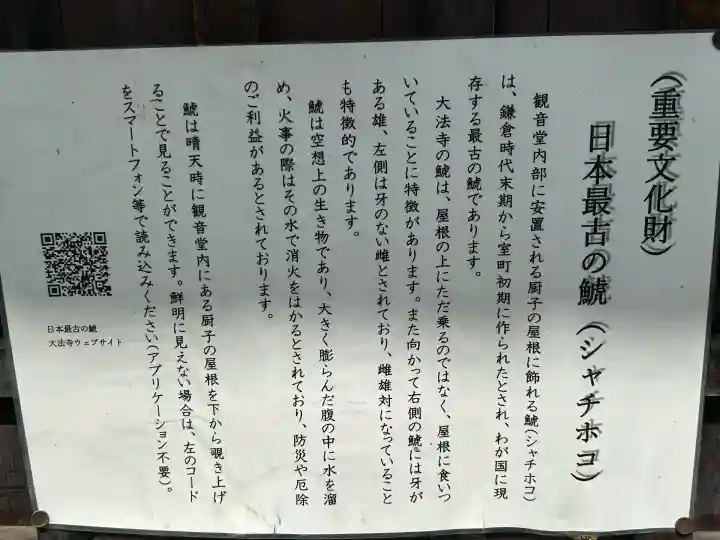 (重要文化財)
『日本最古の鯱(シャチホコ)
観音堂内部に安置される厨子の屋根に飾れる鯱(シャチホコ)
は、鎌倉時代末期から室町初期に作られたとされ、わが国に現
存する最古の鯱であります。
大法寺の鯱は、屋根の上にただ乗るのではなく、屋根に食いつ
いていることに特徴があります。また向かって右側の鯱には牙が
ある雄、左側は牙のない雌とされており、雌雄対になっていること
も特徴的であります。
鯱は空想上の生き物であり、大きく膨らんだ腹の中に水を溜
め、火事の際はその水で消火をはかるとされており、防災や厄除
のご利益があるとされております。
鯱は晴天時に観音堂内にある厨子の屋根を下から覗き上げ
ることで見ることができます。鮮明に見えない場合は、左のコード
をスマートフォン等で読み込みください(アプリケーション不要)。
日本最古の鯱
大法寺ウェブサイト